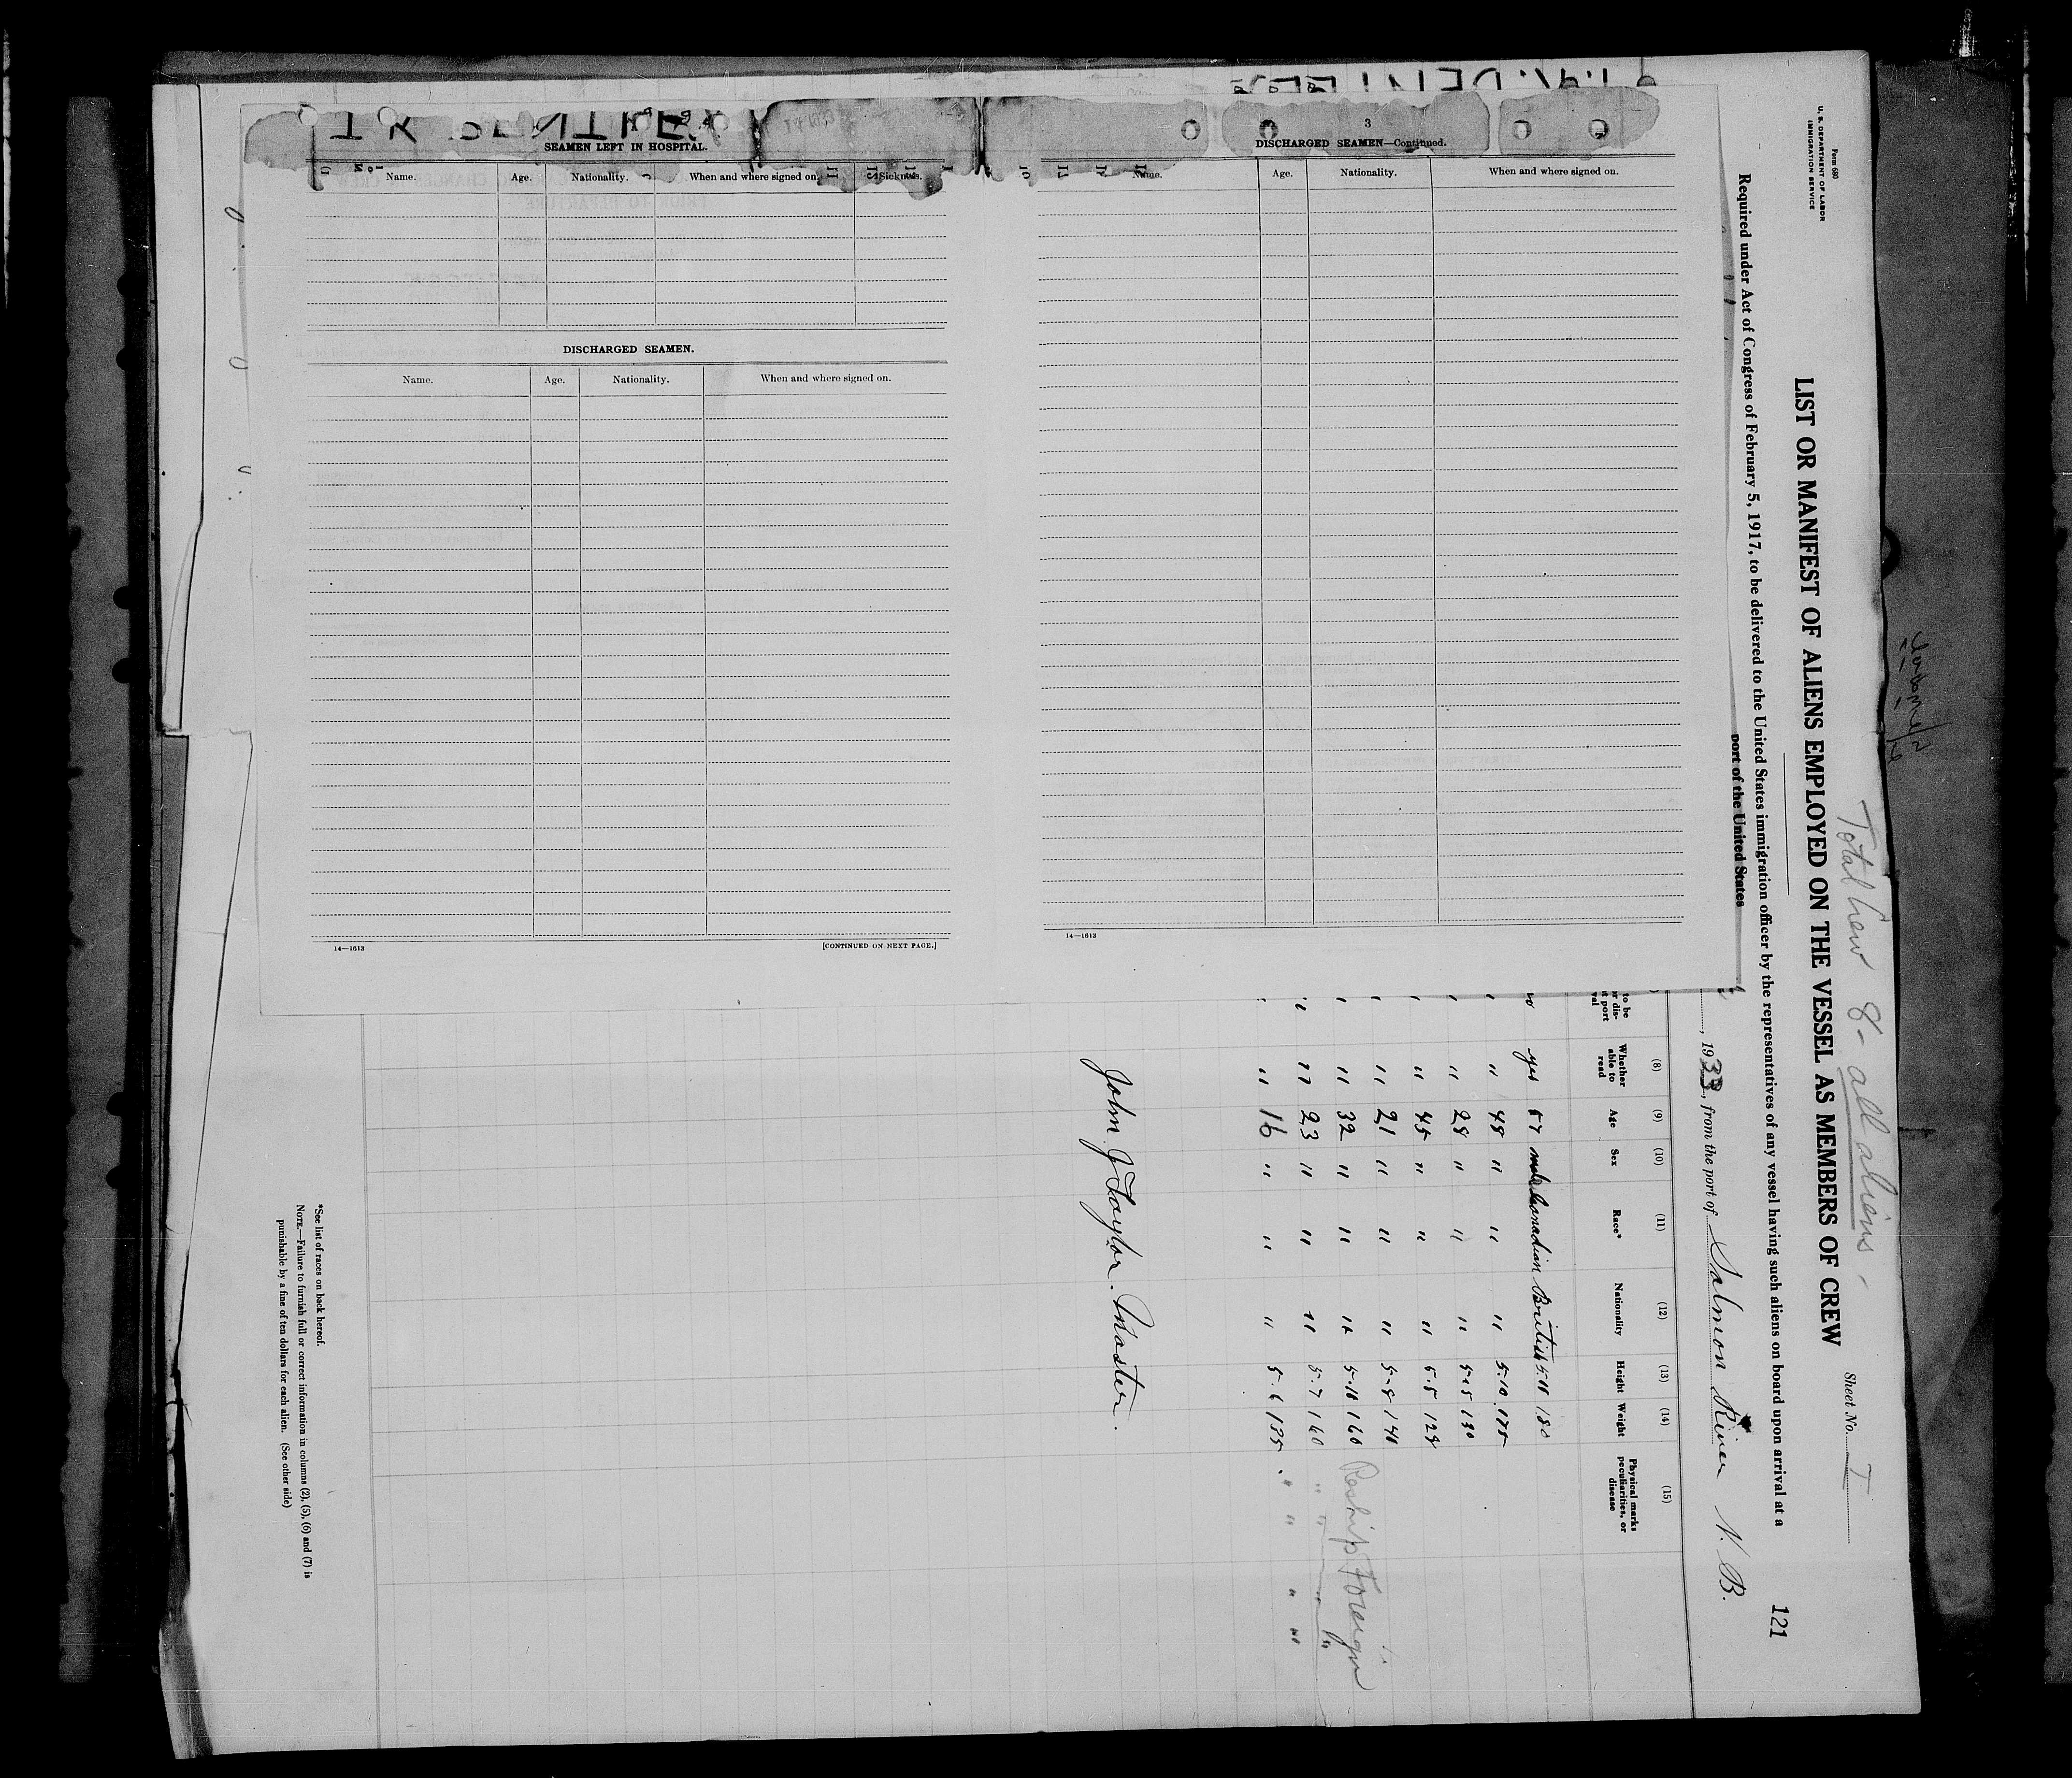 SEAMEN LEFT IN HOSPITAL.
Name. Age. Nationality. When and where signed on. Sickness.
DISCHARGED SEAMEN.
Name. Age. Nationality. When and where signed on.
14—1613 [CONTINUED ON NEXT PAGE.]
3
DISCHARGED SEAMEN—Continued.
Name. Age. Nationality. When and where signed on.
14—1613
Form 680
U. S. DEPARTMENT OF LABOR
IMMIGRATION SERVICE
Total Crew 8 - all aliens -
Sheet No. 1
LIST OR MANIFEST OF ALIENS EMPLOYED ON THE VESSEL AS MEMBERS OF CREW
121
Required under Act of Congress of February 5, 1917, to be delivered to the United States immigration officer by the representatives of any vessel having such aliens on board upon arrival at a
port of the United States
, 1933, from the port of Salmon River N. B.
(8) (9) (10) (11) (12) (13) (14) (15)
Whether able to read Age Sex Race* Nationality Height Weight Physical marks, peculiarities, or disease
yes 57 male Canadian British 5.11 180
" 48 " " " 5.10 175
" 28 " " " 5-5 130
" 45 " " " 5.5 128
" 21 " " " 5-8 140
" 32 " " " 5-10 160 Reship Foreign
" 23 " " " 5.7 160 " " "
" 16 " " " 5.6 135 " " " "
John J Taylor. Master.
*See list of races on back hereof.
NOTE.—Failure to furnish full or correct information in columns (2), (5), (6) and (7) is
punishable by a fine of ten dollars for each alien. (See other side)